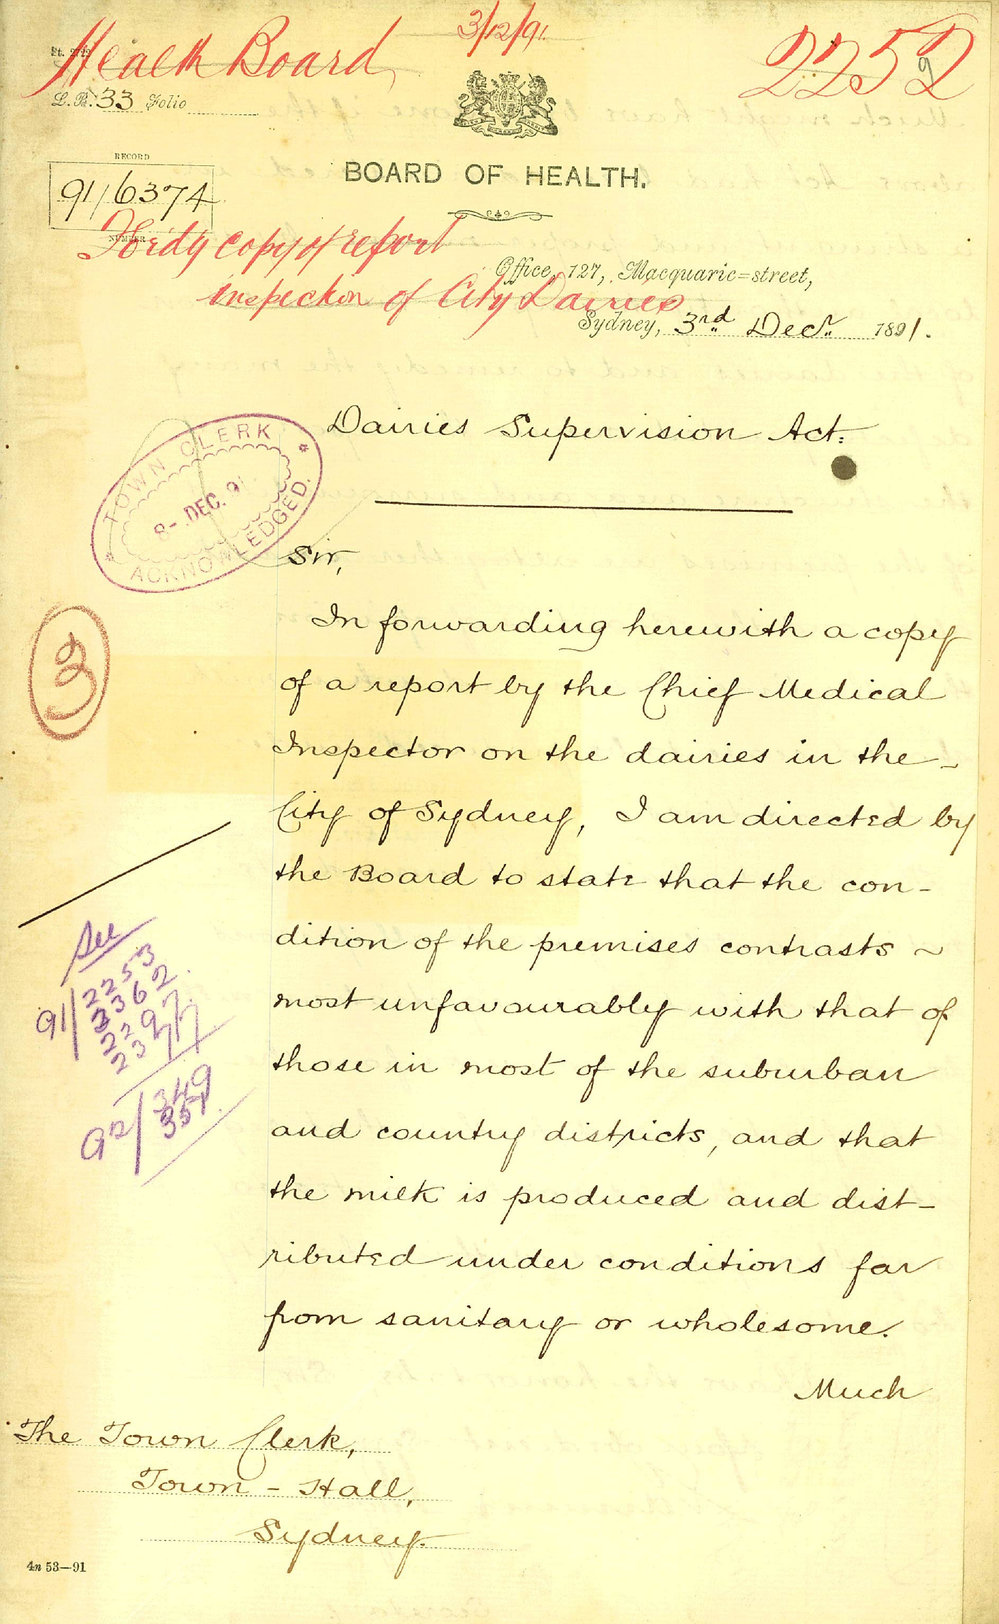 Health Board
3/12/91
2252
L.B. 33 Folio
RECORD
91/6374
NUMBER
BOARD OF HEALTH.
Fordg copy of report
inspection of City Dairies
Office, 127, Macquarie=street,
Sydney, 3rd Decr. 1891.
Dairies Supervision Act.
TOWN CLERK
8- DEC. 91
ACKNOWLEDGED.
Sir,
In forwarding herewith a copy
of a report by the Chief Medical
Inspector on the dairies in the
City of Sydney, I am directed by
the Board to state that the con-
dition of the premises contrasts ~
most unfavourably with that of
those in most of the suburban
and country districts, and that
the milk is produced and dist-
ributed under conditions far
from sanitary or wholesome.
Much
3
See
91/2253
2362
2297
2377
92/349
359
The Town Clerk,
Town - Hall,
Sydney.
4n 53—91